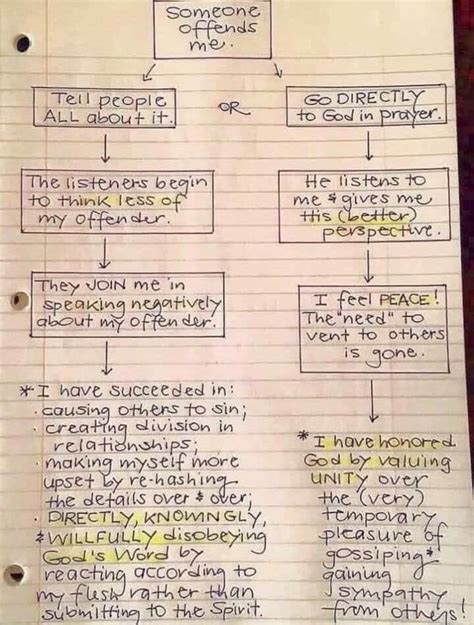 Someone
offends
me.
Tell people
ALL about it.
OR
Go DIRECTLY
to God in prayer.
The listeners begin
to think less of
my offender.
He listens to
me & gives me
His (better)
perspective.
They JOIN me in
speaking negatively
about my offender.
I feel PEACE!
The "need" to
vent to others
is gone.
*I have succeeded in:
· causing others to sin;
· creating division in
relationships;
· making myself more
upset by re-hashing
the details over & over;
· DIRECTLY, KNOWNGLY,
& WILLFULLY disobeying
God's Word by
reacting according to
my flesh rather than
submitting to the Spirit.
*I have honored
God by valuing
UNITY over
the (very)
temporary
pleasure of
gossiping &
gaining
sympathy
from others!